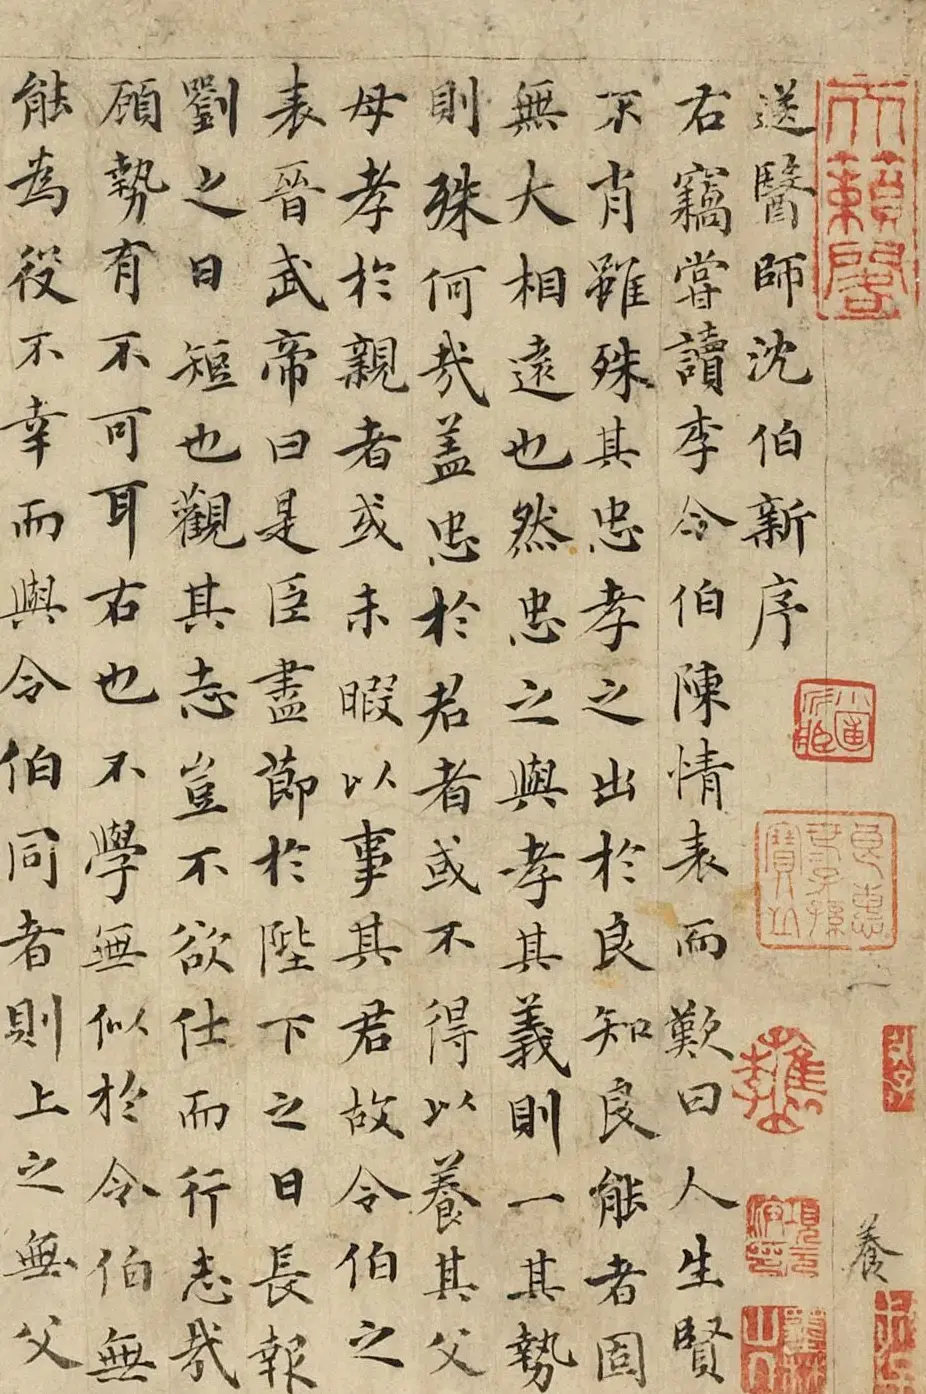 送醫師沈伯新序
右竊嘗讀李令伯陳情表而歎曰人生賢
不肖雖殊其忠孝之出於良知良能者固
無大相遠也然忠之與孝其義則一其勢
則殊何哉蓋忠於君者或不得以養其父
母孝於親者或未暇以事其君故令伯之
表晉武帝曰是臣盡節於陛下之日長報
劉之日短也觀其志豈不欲仕而行志哉
顧勢有不可耳右也不學無似於令伯無
能為役不幸而與令伯同者則上之無父
天籟閣
養